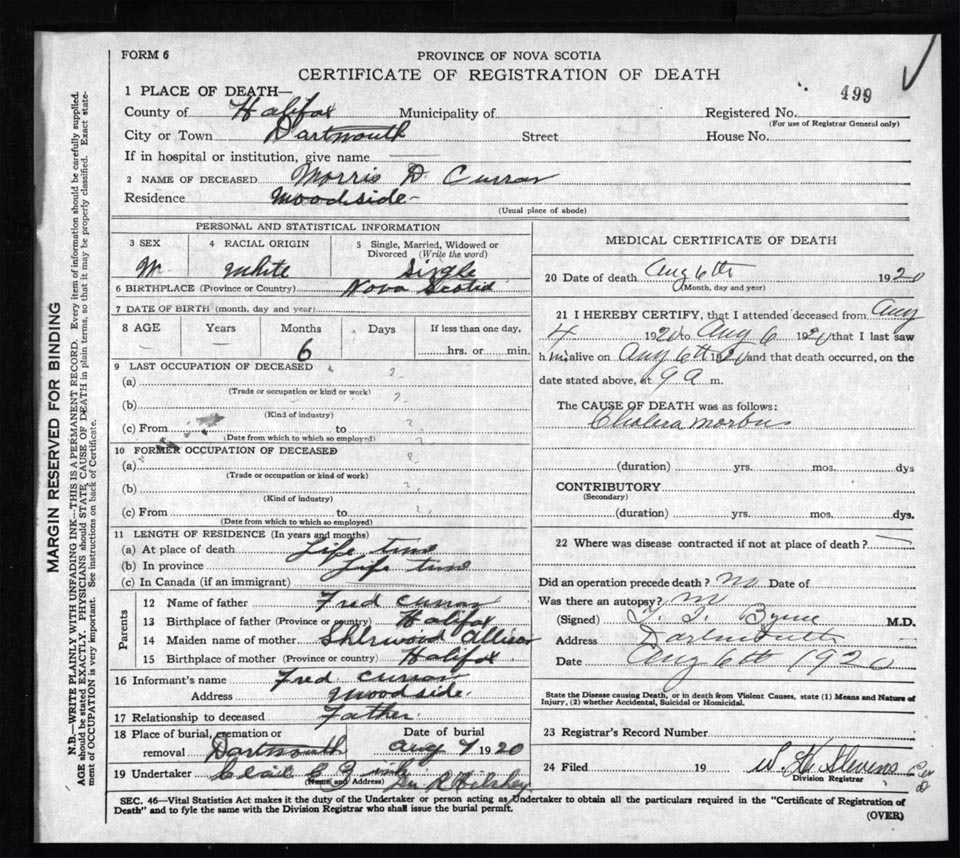 FORM 6
PROVINCE OF NOVA SCOTIA
CERTIFICATE OF REGISTRATION OF DEATH
499
1 PLACE OF DEATH—
County of Halifax Municipality of Registered No.
(For use of Registrar General only)
City or Town Dartmouth Street House No.
If in hospital or institution, give name
2 NAME OF DECEASED Morris D. Curran
Residence Woodside
(Usual place of abode)
PERSONAL AND STATISTICAL INFORMATION
3 SEX 4 RACIAL ORIGIN 5 Single, Married, Widowed or Divorced (Write the word)
M. White Single
6 BIRTHPLACE (Province or Country) Nova Scotia
7 DATE OF BIRTH (month, day and year)
8 AGE Years Months Days If less than one day,
6 hrs. or min.
9 LAST OCCUPATION OF DECEASED
(a)
(Trade or occupation or kind or work)
(b)
(Kind of industry)
(c) From to
(Date from which to which so employed)
10 FORMER OCCUPATION OF DECEASED
(a)
(Trade or occupation or kind of work)
(b)
(Kind of industry)
(c) From to
(Date from which to which so employed)
11 LENGTH OF RESIDENCE (In years and months)
(a) At place of death Life time
(b) In province Life time
(c) In Canada (if an immigrant)
Parents
12 Name of father Fred Curran
13 Birthplace of father (Province or country) Halifax
14 Maiden name of mother Sherwood Allison
15 Birthplace of mother (Province or country) Halifax
16 Informant's name Fred Curran
Address Woodside.
17 Relationship to deceased Father
18 Place of burial, cremation or removal Dartmouth Date of burial Aug 7 1920
19 Undertaker
(Name and Address)
MEDICAL CERTIFICATE OF DEATH
20 Date of death Aug 6th 1920
(Month, day and year)
21 I HEREBY CERTIFY, that I attended deceased from Aug
4 1920 to Aug 6 1920 that I last saw
him alive on Aug 6th 1920 and that death occurred, on the
date stated above, at 9 a m.
The CAUSE OF DEATH was as follows:
Cholera morbus
(duration) yrs. mos. dys
CONTRIBUTORY
(Secondary)
(duration) yrs. mos. dys.
22 Where was disease contracted if not at place of death?
Did an operation precede death? no Date of
Was there an autopsy? no
(Signed) Byrne M.D.
Address Dartmouth
Date Aug 6th 1920
State the Disease causing Death, or in death from Violent Causes, state (1) Means and Nature of
Injury, (2) whether Accidental, Suicidal or Homicidal.
23 Registrar's Record Number
24 Filed 19 Stevens
Division Registrar
SEC. 46—Vital Statistics Act makes it the duty of the Undertaker or person acting as Undertaker to obtain all the particulars required in the "Certificate of Registration of
Death" and to fyle the same with the Division Registrar who shall issue the burial permit.
(OVER)
MARGIN RESERVED FOR BINDING
N.B.—WRITE PLAINLY WITH UNFADING INK—THIS IS A PERMANENT RECORD. Every item of information should be carefully supplied.
AGE should be stated EXACTLY. PHYSICIANS should STATE CAUSE OF DEATH in plain terms, so that it may be properly classified. Exact statement of OCCUPATION is very important. See instructions on back of Certificate.